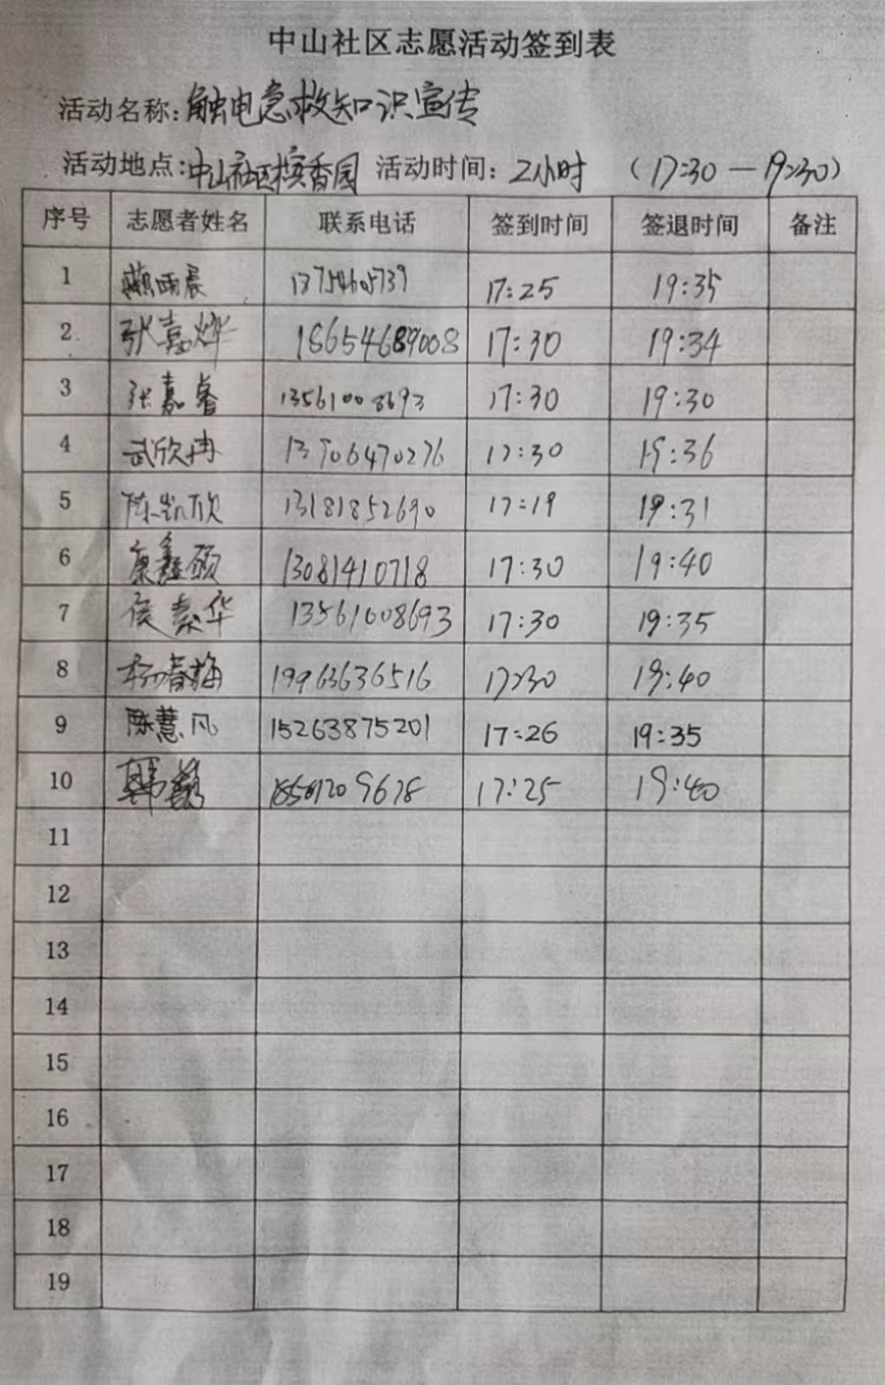 中山社区志愿活动签到表
活动名称:触电急救知识宣传
活动地点:中山社区槟香园 活动时间: 2小时 (17:30 — 19:30)
序号 志愿者姓名 联系电话 签到时间 签退时间 备注
1 雨晨 17:25 19:35
2 张嘉烨 18654689008 17:30 19:34
3 张嘉睿 13561008693 17:30 19:30
4 武欣冉 13706470276 17:30 19:36
5 陈凯欣 13181852690 17:19 19:31
6 康鑫硕 13081410718 17:30 19:40
7 侯秦华 13561008693 17:30 19:35
8 杨春梅 19963636516 17:30 19:40
9 陈慧凡 15263875201 17:26 19:35
10 韩 17:25 19:40
11
12
13
14
15
16
17
18
19